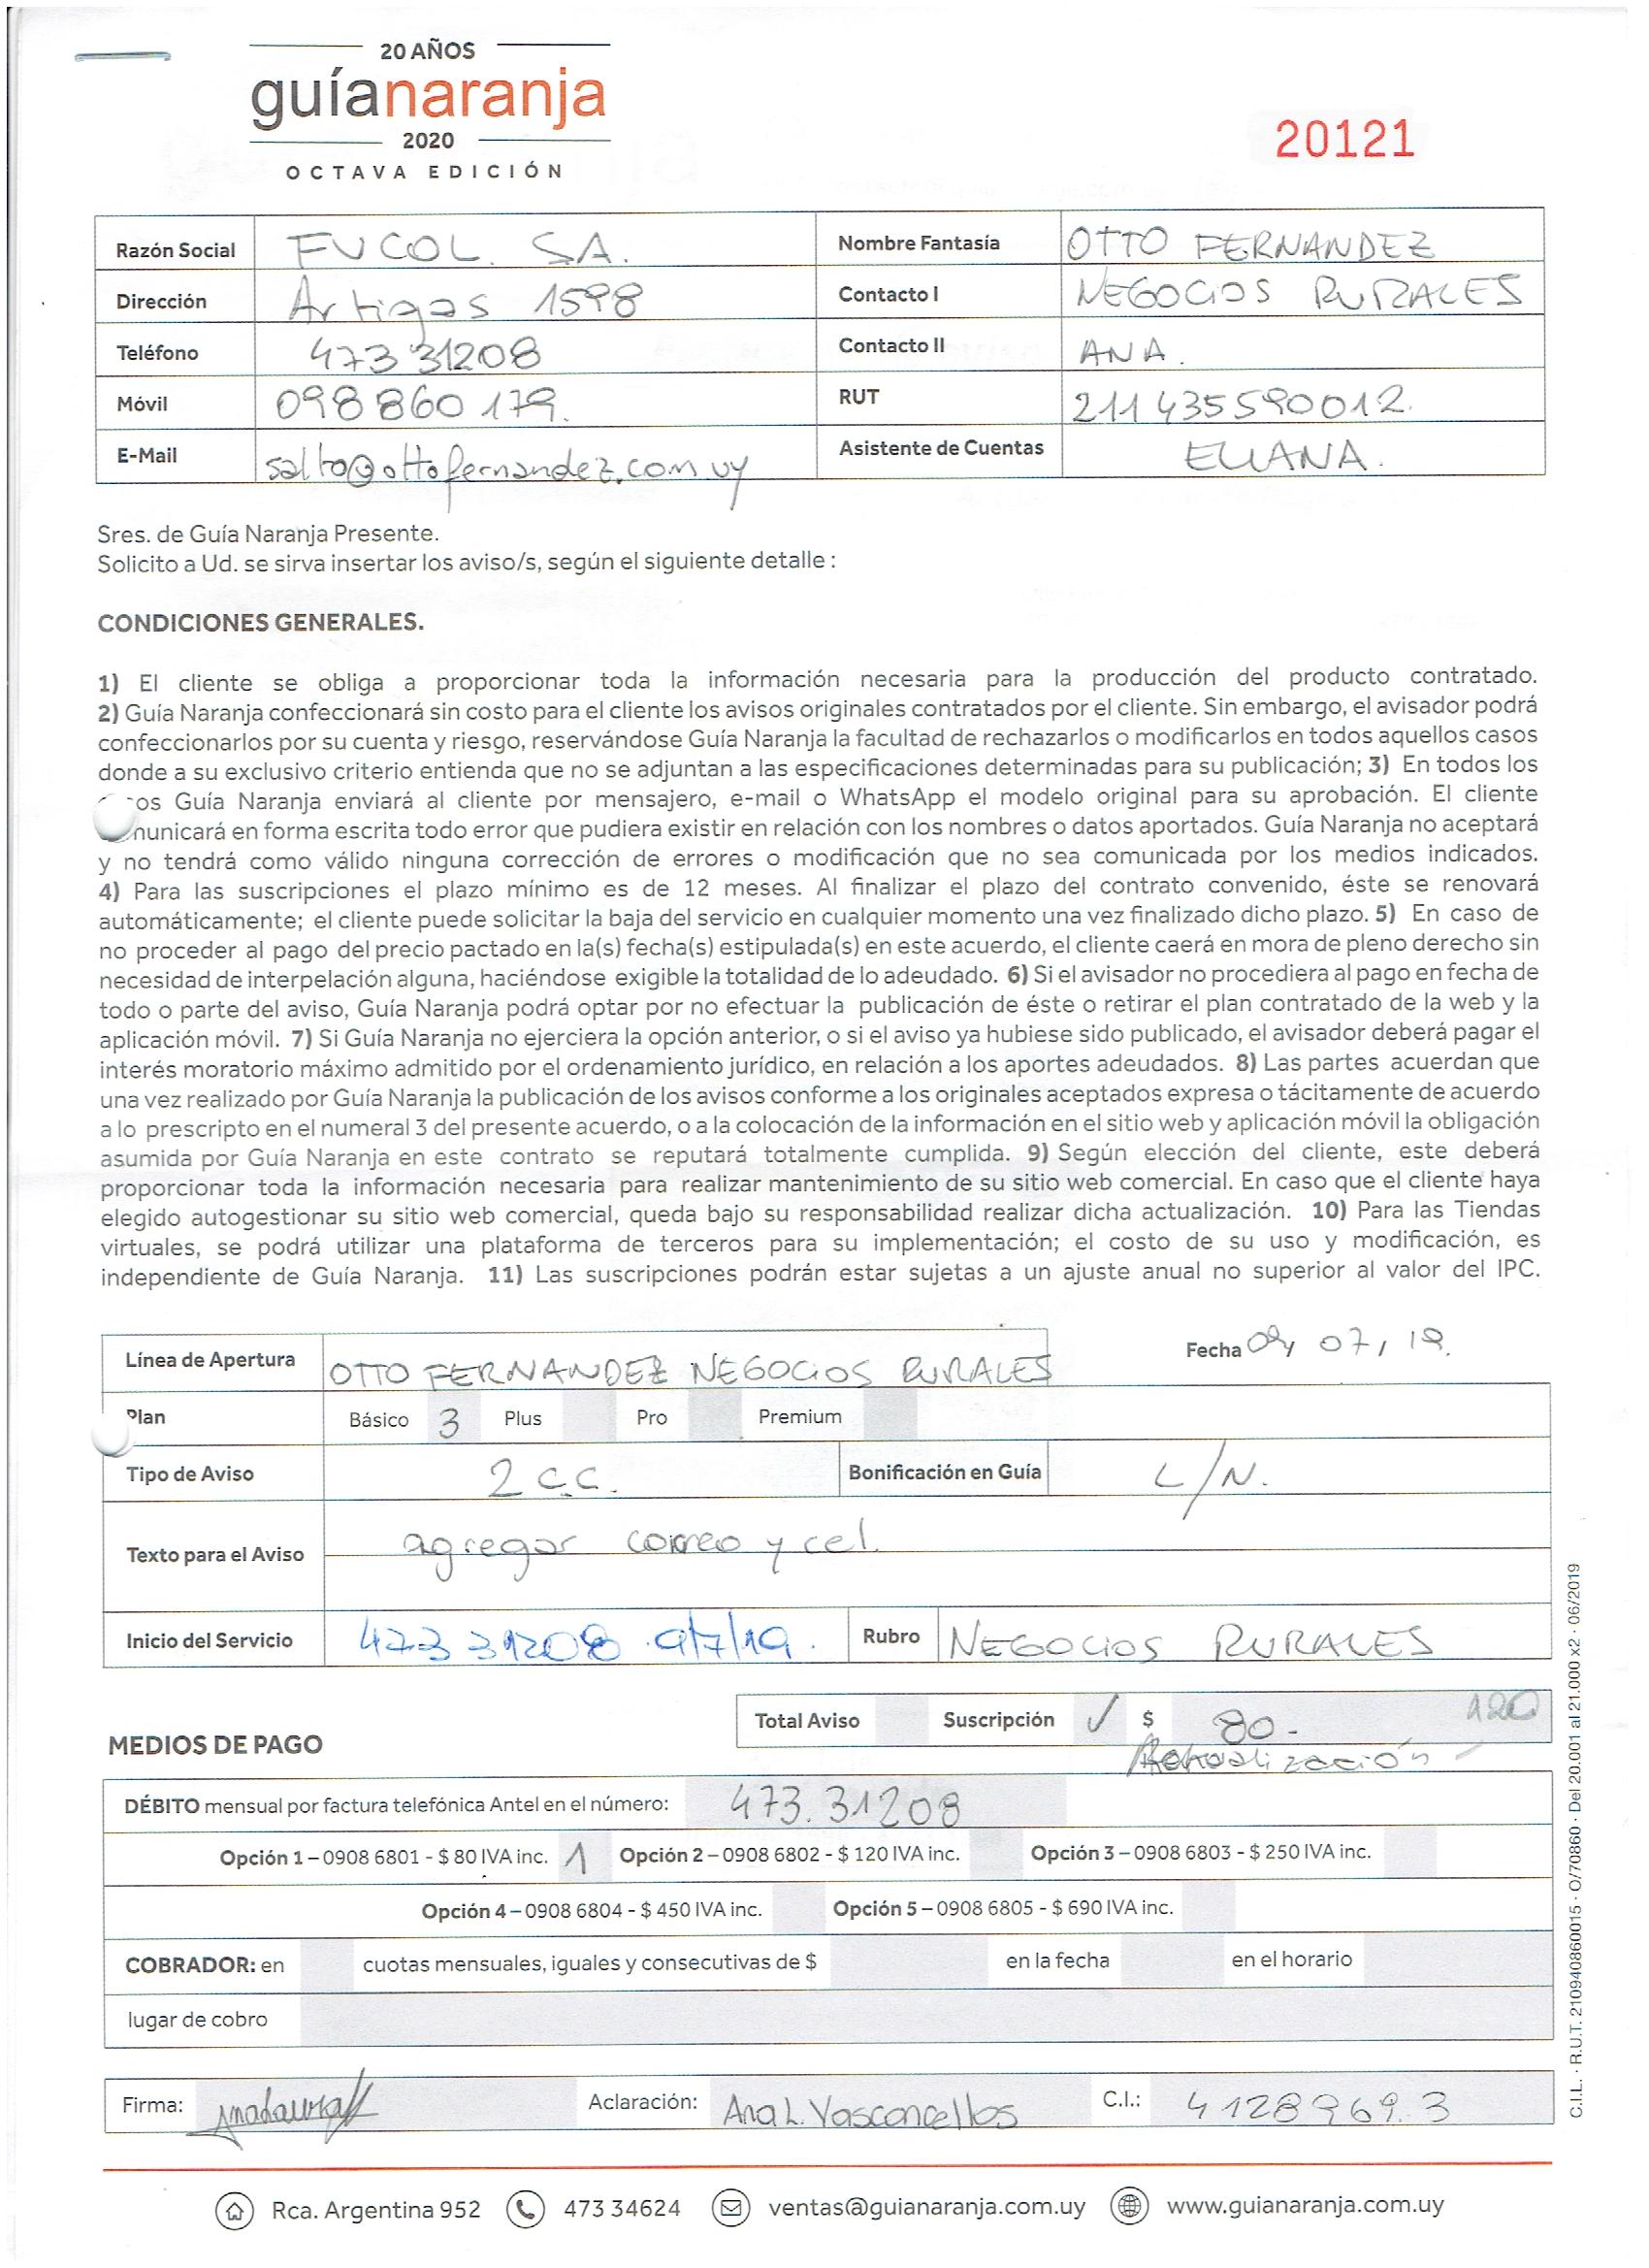 20 AÑOS
guíanaranja
2020
OCTAVA EDICIÓN
20121
Razón Social FUCOL. SA. Nombre Fantasía OTTO FERNANDEZ
Dirección Artigas 1598 Contacto I NEGOCIOS RURALES
Teléfono 473 31208 Contacto II ANA.
Móvil 098 860 179. RUT 211435590012.
E-Mail salto@ottofernandez.com.uy Asistente de Cuentas ELIANA.
Sres. de Guía Naranja Presente.
Solicito a Ud. se sirva insertar los aviso/s, según el siguiente detalle :
CONDICIONES GENERALES.
1) El cliente se obliga a proporcionar toda la información necesaria para la producción del producto contratado.
2) Guía Naranja confeccionará sin costo para el cliente los avisos originales contratados por el cliente. Sin embargo, el avisador podrá
confeccionarlos por su cuenta y riesgo, reservándose Guía Naranja la facultad de rechazarlos o modificarlos en todos aquellos casos
donde a su exclusivo criterio entienda que no se adjuntan a las especificaciones determinadas para su publicación; 3) En todos los
os Guía Naranja enviará al cliente por mensajero, e-mail o WhatsApp el modelo original para su aprobación. El cliente
municará en forma escrita todo error que pudiera existir en relación con los nombres o datos aportados. Guía Naranja no aceptará
y no tendrá como válido ninguna corrección de errores o modificación que no sea comunicada por los medios indicados.
4) Para las suscripciones el plazo mínimo es de 12 meses. Al finalizar el plazo del contrato convenido, éste se renovará
automáticamente; el cliente puede solicitar la baja del servicio en cualquier momento una vez finalizado dicho plazo. 5) En caso de
no proceder al pago del precio pactado en la(s) fecha(s) estipulada(s) en este acuerdo, el cliente caerá en mora de pleno derecho sin
necesidad de interpelación alguna, haciéndose exigible la totalidad de lo adeudado. 6) Si el avisador no procediera al pago en fecha de
todo o parte del aviso, Guía Naranja podrá optar por no efectuar la publicación de éste o retirar el plan contratado de la web y la
aplicación móvil. 7) Si Guía Naranja no ejerciera la opción anterior, o si el aviso ya hubiese sido publicado, el avisador deberá pagar el
interés moratorio máximo admitido por el ordenamiento jurídico, en relación a los aportes adeudados. 8) Las partes acuerdan que
una vez realizado por Guía Naranja la publicación de los avisos conforme a los originales aceptados expresa o tácitamente de acuerdo
a lo prescripto en el numeral 3 del presente acuerdo, o a la colocación de la información en el sitio web y aplicación móvil la obligación
asumida por Guía Naranja en este contrato se reputará totalmente cumplida. 9) Según elección del cliente, este deberá
proporcionar toda la información necesaria para realizar mantenimiento de su sitio web comercial. En caso que el cliente haya
elegido autogestionar su sitio web comercial, queda bajo su responsabilidad realizar dicha actualización. 10) Para las Tiendas
virtuales, se podrá utilizar una plataforma de terceros para su implementación; el costo de su uso y modificación, es
independiente de Guía Naranja. 11) Las suscripciones podrán estar sujetas a un ajuste anual no superior al valor del IPC.
Línea de Apertura OTTO FERNANDEZ NEGOCIOS RURALES Fecha 09, 07, 19.
Plan Básico 3 Plus Pro Premium
Tipo de Aviso 2 C.C. Bonificación en Guía L/N.
Texto para el Aviso agregar correo y cel.
Inicio del Servicio 473 31208 9/7/19. Rubro NEGOCIOS RURALES
Total Aviso Suscripción ✓ $ 80.- 120
MEDIOS DE PAGO
DÉBITO mensual por factura telefónica Antel en el número: 473.31208
Opción 1 – 0908 6801 - $ 80 IVA inc. 1 Opción 2 – 0908 6802 - $ 120 IVA inc. Opción 3 – 0908 6803 - $ 250 IVA inc.
Opción 4 – 0908 6804 - $ 450 IVA inc. Opción 5 – 0908 6805 - $ 690 IVA inc.
COBRADOR: en cuotas mensuales, iguales y consecutivas de $ en la fecha en el horario
lugar de cobro
Firma: Aclaración: Ana L. Vasconcellos C.I.: 4128969.3
C.I.L. · R.U.T. 210940860015 · O/70860 · Del 20.001 al 21.000 x2 · 06/2019
Rca. Argentina 952 473 34624 ventas@guianaranja.com.uy www.guianaranja.com.uy